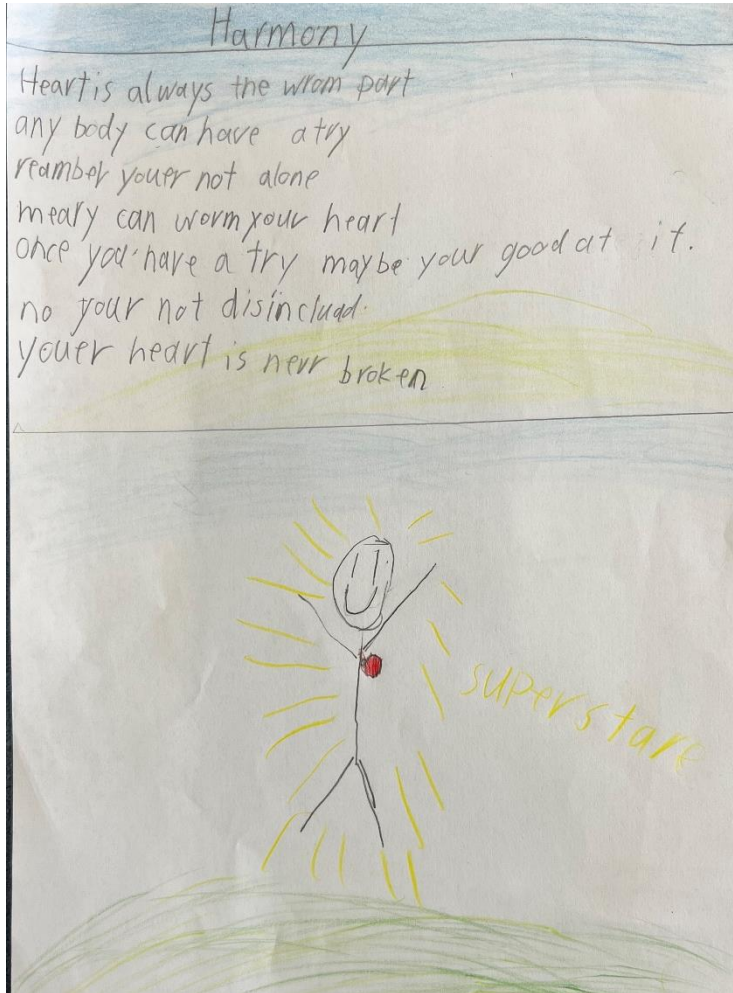 Harmony
Heart is always the wrom part
any body can have a try
reamber youer not alone
meary can worm your heart
once you have a try maybe your good at it.
no your not disincluad.
youer heart is nevr broken
superstare